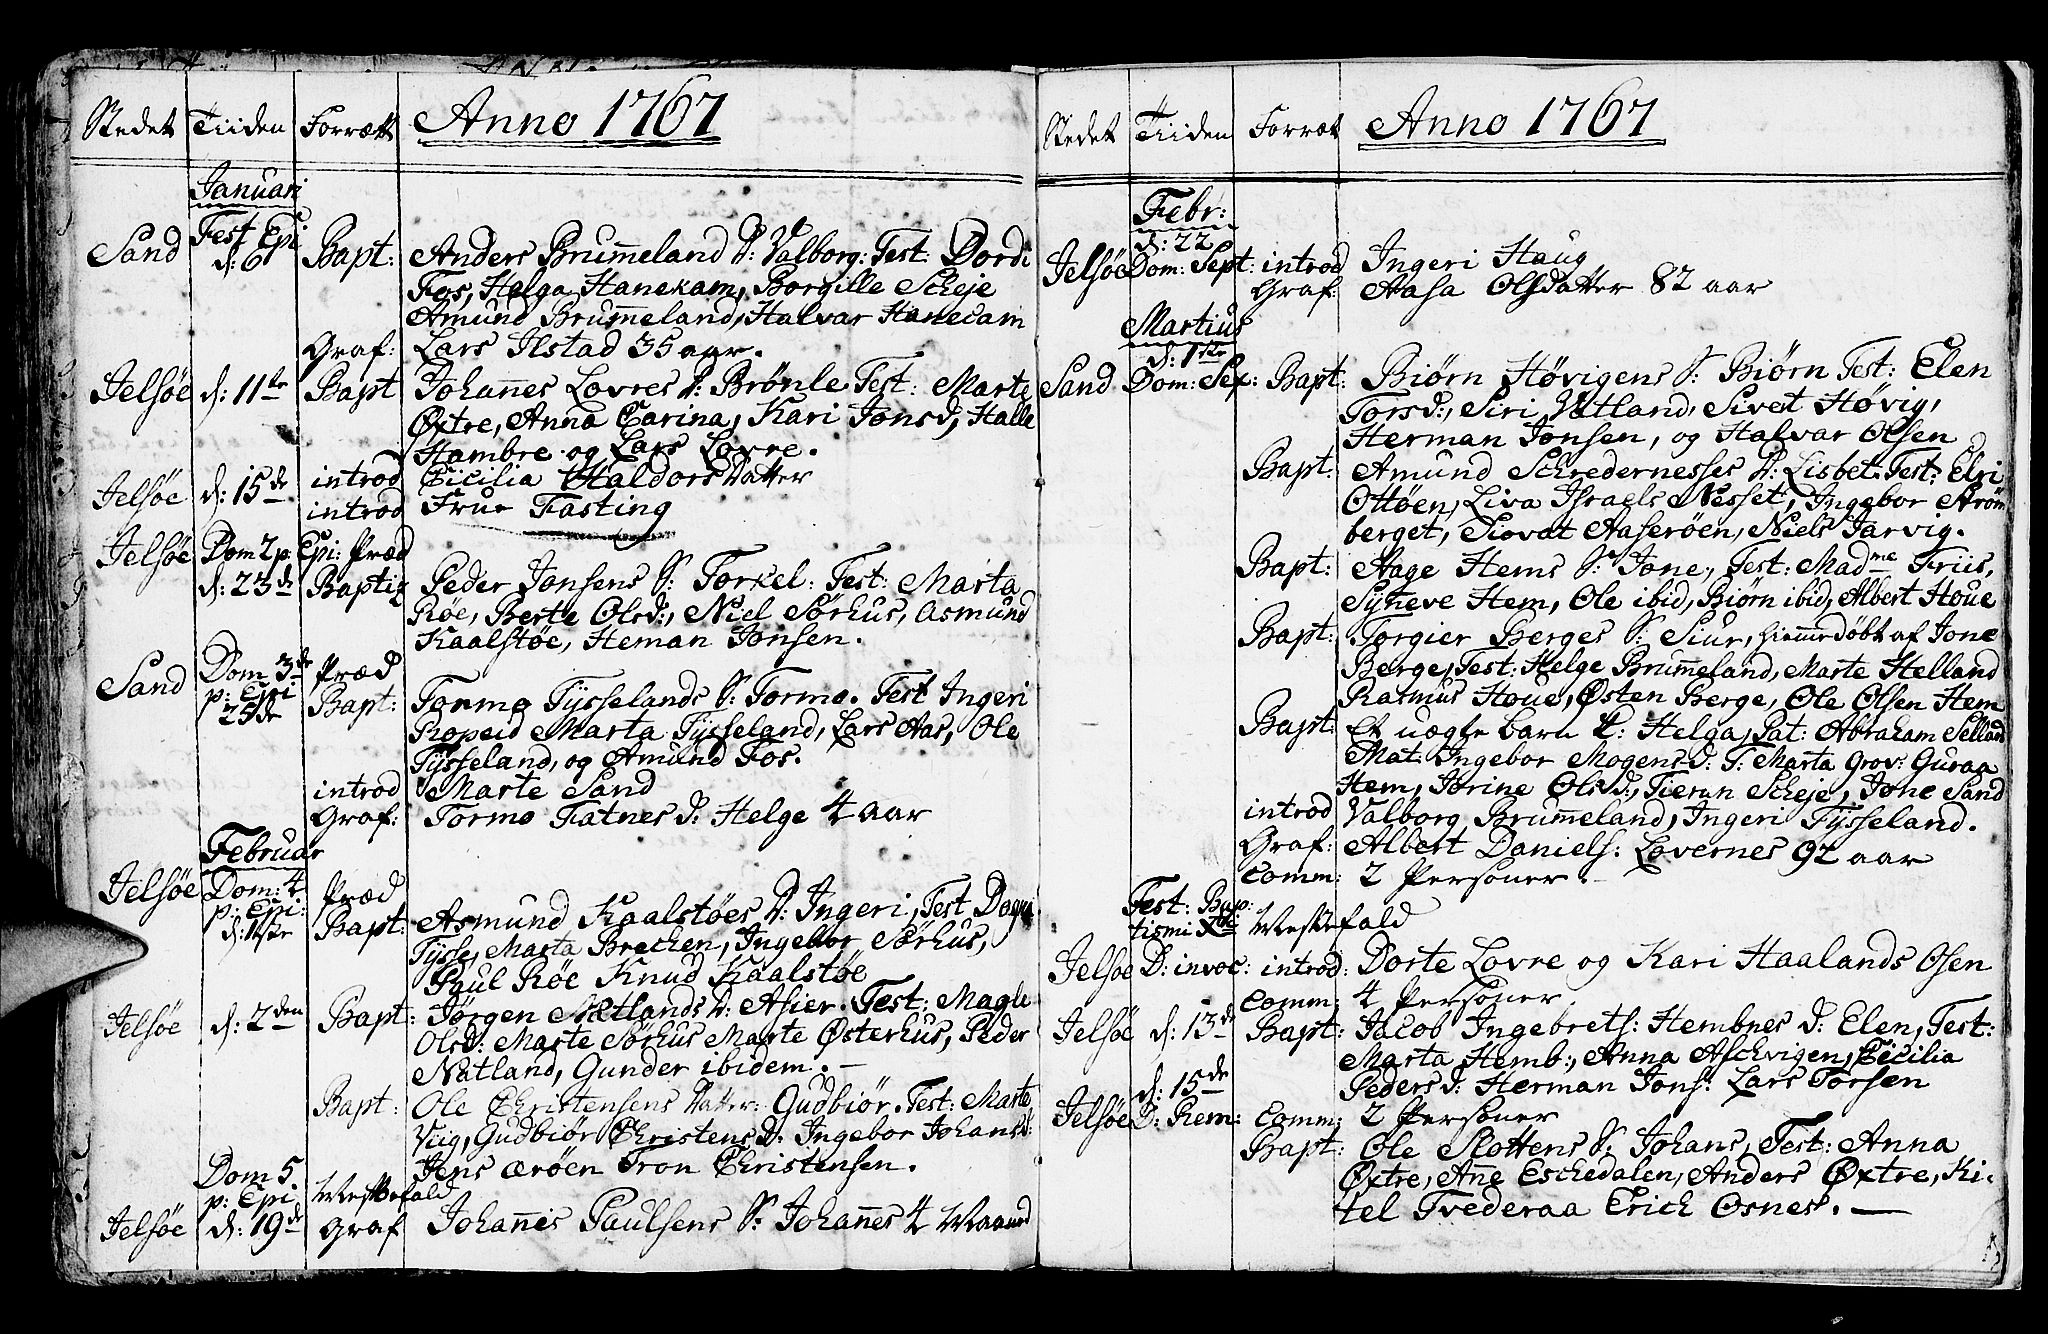 Stedet Tiiden Forrætt Anno 1767
Januari
Sand Fest Epi Bapt: Anders Brum̄eland D: Valborg: Test: Dordi
d: 6
Fos, Helga Hanekam, Borgille Scheje
Amund Brum̄eland, Halvar Hanecam
Graf: Lars Ilstad 35 aar.
Jelsøe d: 11te Bapt Johan̄es Lovres D: Brønle Test: Marte
Øxtre, Anna Carina, Kari Jonsd, Halle
Hambre og Lars Lovre.
Jelsøe d: 15de introd Cicilia Haldors Datter
introd Frue Fasting
Jelsøe Dom 2 p: Epi: Præd
d: 23de Baptiz Peder Jonsens S: Torkel: Test: Marta
Røe, Berte Olsd:, Niel Sørhus, Asmund
Kaalstøe, Heman Jonsen.
Sand Dom 3de Præd
p: Epi 25de Bapt: Tormo Tysselands S: Tormo. Test Ingeri
Ropeid Marta Tysseland, Lars Aas, Ole
Tysseland, og Amund Fos.
introd Marte Sand
Graf: Tormo Fatnes D: Helge 4 aar
Februar
Jelsøe Dom: 4 Præd
p: Epi: d: 1ste Bapt: Asmund Kaalstøes D: Ingeri, Test Dogna
Tysse, Marta Brechen, Ingebor Sørhus,
Paul Røe Knud Kaalstøe
Jelsøe d: 2den Bapt: Jørgen Nætlands D: Asier. Test: Magle
Olsd: Marte Sørhus Marte Østerhus, Peder
Natland, Gunder ibidem. —
Bapt: Ole Christensens Datter: Gudbiør. Test: Marte
Viig, Gudbiør Christens D: Ingebor Johans D:
Jens ærøen Tron Christensen.
Dom 5. p: Epi Messefald
Jelsøe d: 19de Graf Johan̄is Paulsens S: Johan̄es 4 Maaned
Stedet Tiiden Forræt Anno 1767
Febr:
d: 22
Jelsøe Dom: Sept: introd Ingeri Haug
Graf: Aasa Olsdatter 82 aar
Martius
d: 1ste
Sand Dom: Sex: Bapt: Biørn Høvigens S: Biørn Test: Elen
Torsd:, Siri Vatland, Sivat Høvig,
Herman Jonsen, og Halvar Olsen
Bapt: Amund Schredernesses D: Lisbet. Test: Elri
Ottøen, Liva Israels Nesset, Ingebor Strøm
berget, Siovat Aaserøen, Niels Jarvig.
Bapt: Aage Hems S: Jone, Test: Madme Friis,
Syneve Hem, Ole ibid, Biørn ibid, Albert Houe
Bapt: Torgier Berges S: Siur, hiem̄edøbt af Jone
Berge, Test: Helge Brum̄eland, Marte Helland
Rasmus Houe, Østen Berge, Ole Olsen Hem
Bapt: Et uægte barn D: Helga, Pat: Abraham Selland
Mat: Ingebor Mogens D: T: Marta Grov: Guraa
Hem, Jorine Olsd:, Tieran Scheje, Jone Sand
introd Valborg Brum̄eland, Ingeri Tysseland.
Graf: Albert Daniels: Lovernes 92 aar
Comm: 2 Personer. —
Fest: Bap:
tismi Xsti Messefald
Jelsøe D: invoc: introd: Dorte Lovre og Kari Haalands Osen
Comm: 4 Personer.
Jelsøe d: 13de Bapt: Jacob Ingebrets: Hembnes D: Elen, Test:
Marta Hemb:, Anna Aschvigen, Cicilia
Peders D: Herman Jons: Lars Torsen
d: 15de
Jelsøe D: Rem: Comm: 2 Personer
Bapt: Ole Slottens S: Johans, Test: Anna
Øxtre, An̄e Eschedalen, Anders Øxtre, Ki-
tel Tvederaa Erich Osnes. —